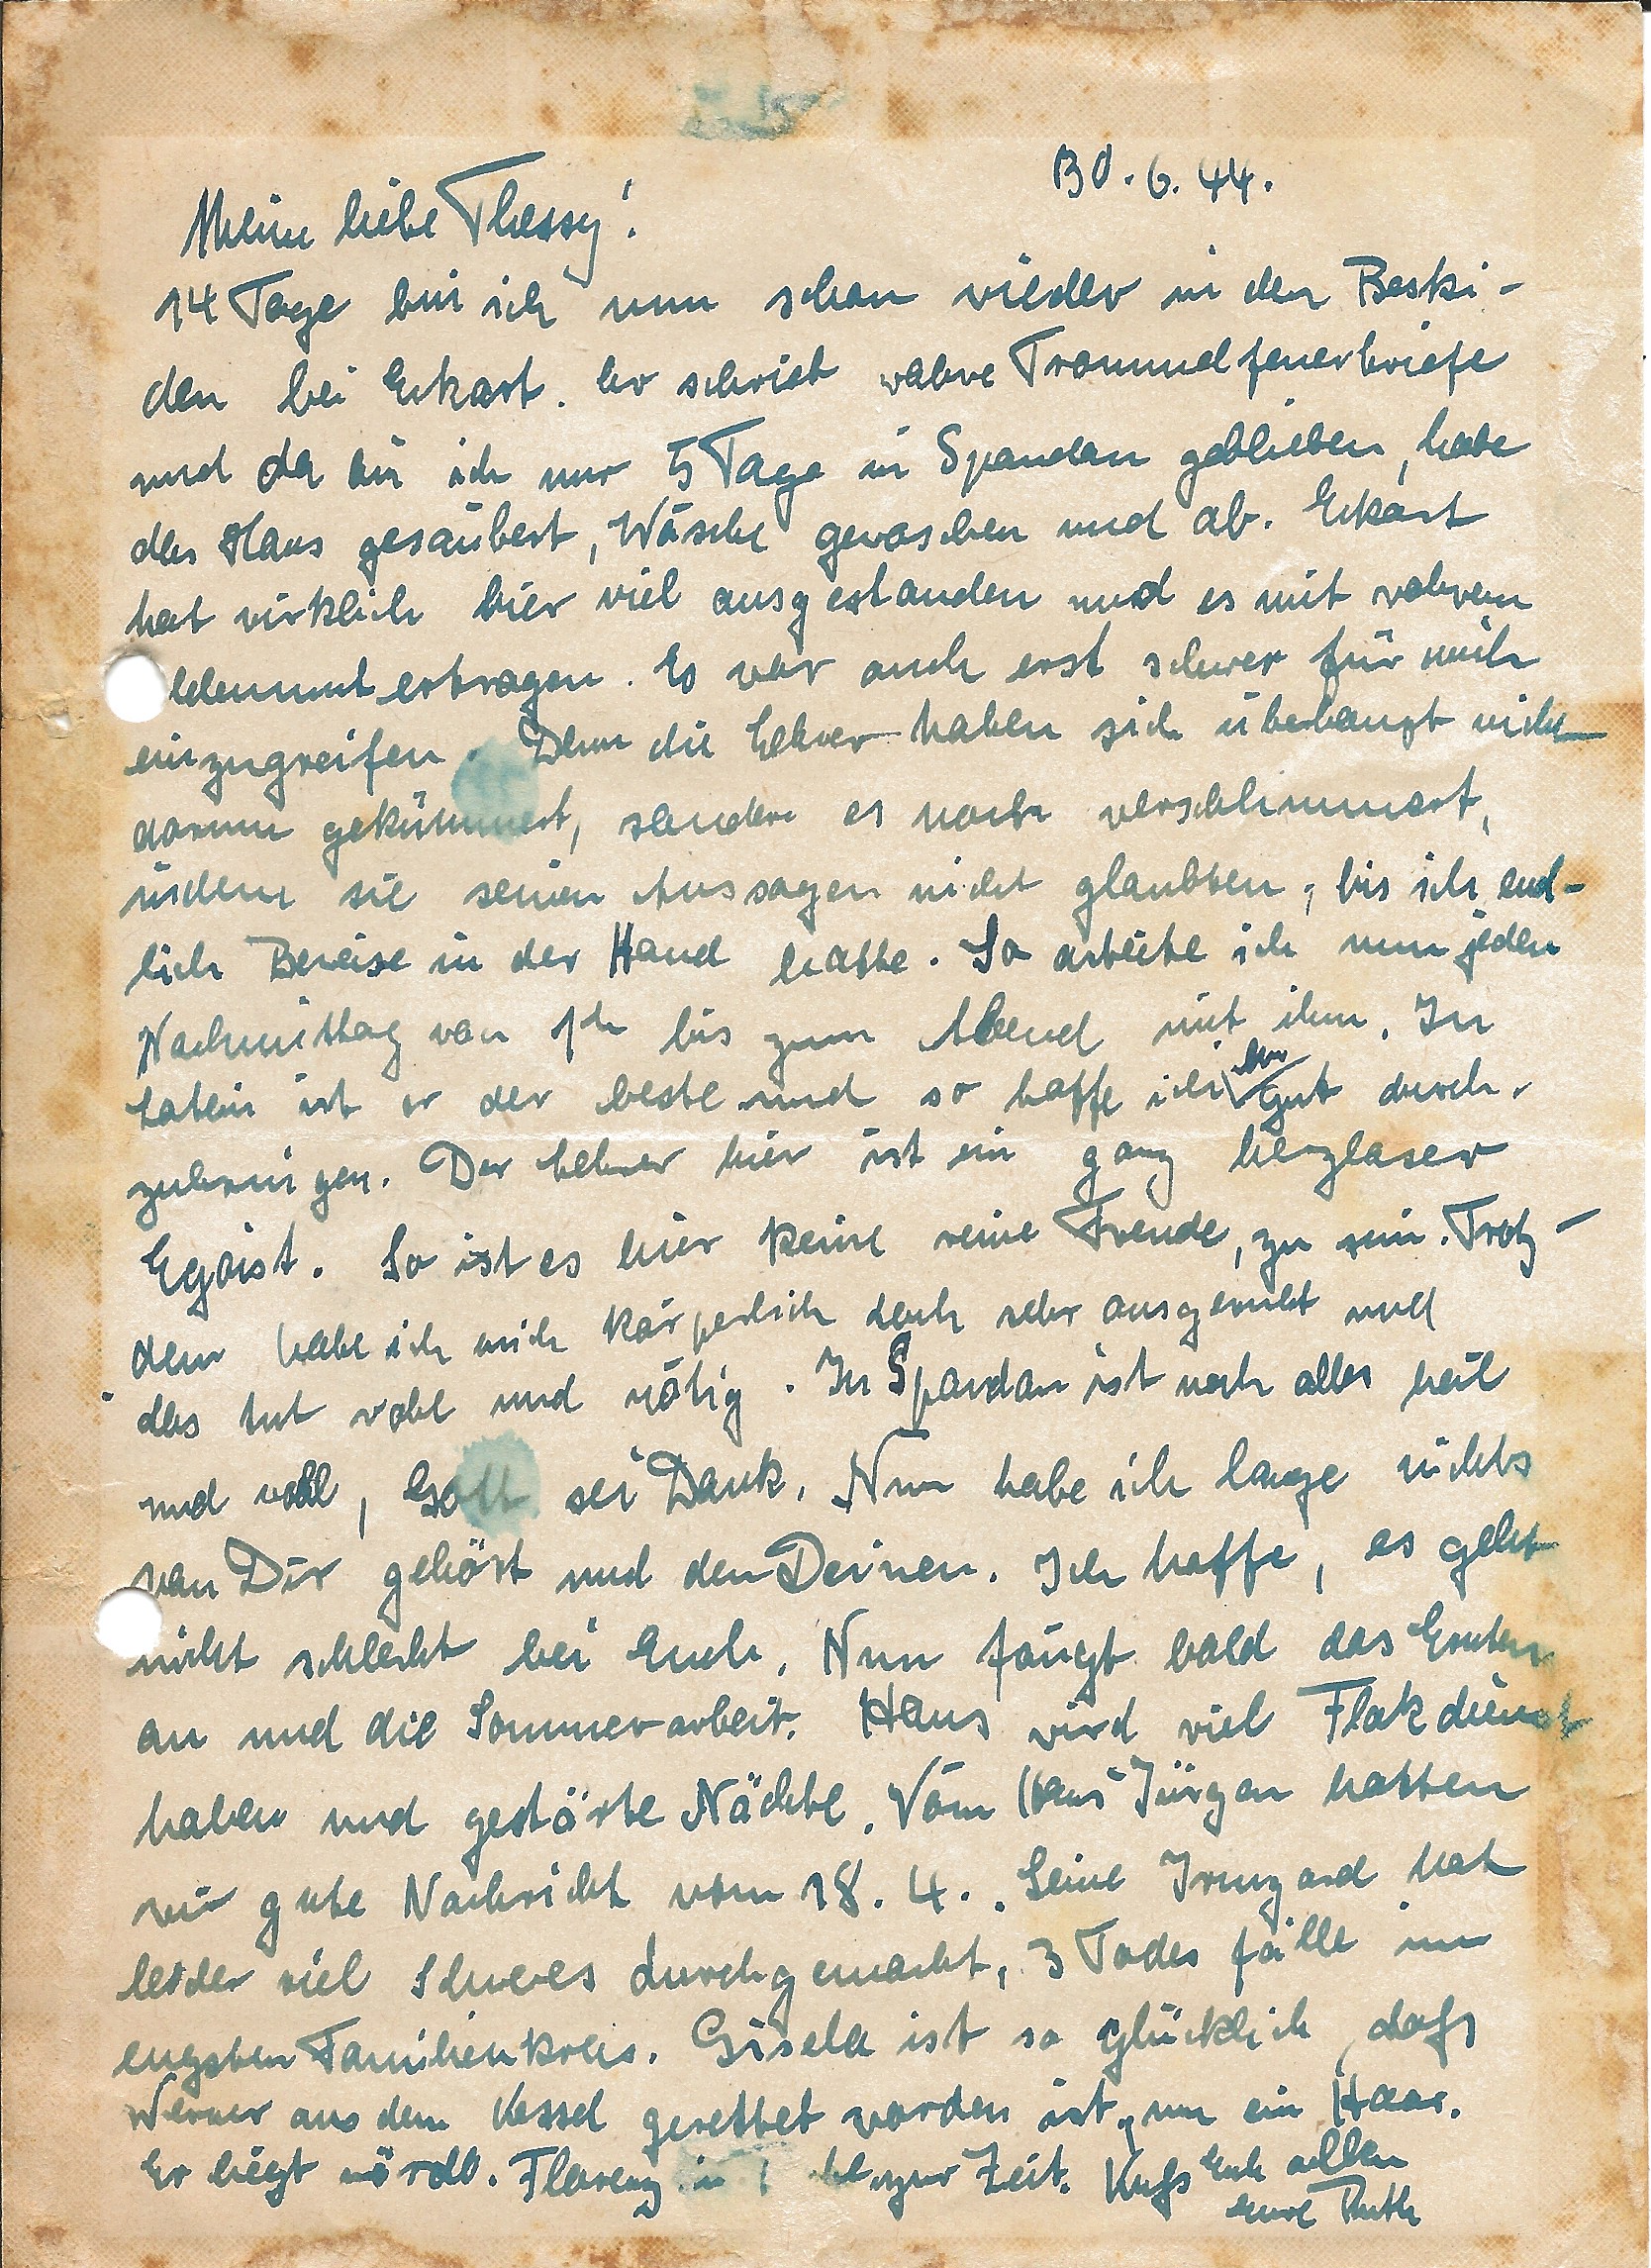 30.6.44.
Meine liebe Thessy!
14 Tage bin ich nun schon wieder in den Beski-
den bei Eckart. Er schrieb wahre Trommelfeuerbriefe
und da bin ich nur 5 Tage in Spandau geblieben, habe
das Haus gesäubert, Wäsche gewaschen und ab. Eckart
hat wirklich hier viel ausgestanden und es mit wahrem
ldenmut ertragen. Es war auch erst schwer für mich
einzugreifen. Denn die Lehrer haben sich überhaupt nicht
darum gekümmert, sondern es noch verschlimmert,
indem sie seinen Aussagen nicht glaubten, bis ich end-
lich Beweise in der Hand hatte. So arbeite ich nun jeden
Nachmittag von 1h bis zum Abend mit ihm. In
Latein ist er der beste und so hoffe ich ihn gut durch-
zubringen. Der Lehrer hier ist ein ganz herzloser
Egoist. So ist es hier keine reine Freude, zu sein. Trotz-
dem habe ich mich körperlich doch sehr ausgeruht und
das tut wohl und nötig. In Spandau ist noch alles heil
und wohl, Gott sei Dank. Nun habe ich lange nichts
von Dir gehört und den Deinen. Ich hoffe, es geht
nicht schlecht bei Euch. Nun fängt bald das Ernten
an und die Sommerarbeit. Hans wird viel Flakdienst
haben und gestörte Nächte. Vom Hans Jürgen hatten
wir gute Nachricht vom 18.4.. Seine Irmgard hat
leider viel Schweres durchgemacht, 3 Todesfälle im
engsten Familienkreis. Gisela ist so glücklich, daß
Werner aus dem Kessel gerettet worden ist, um ein Haar.
Er liegt nördl. Florenz in zur Zeit. Kuß Euch allen
Eure Ruth